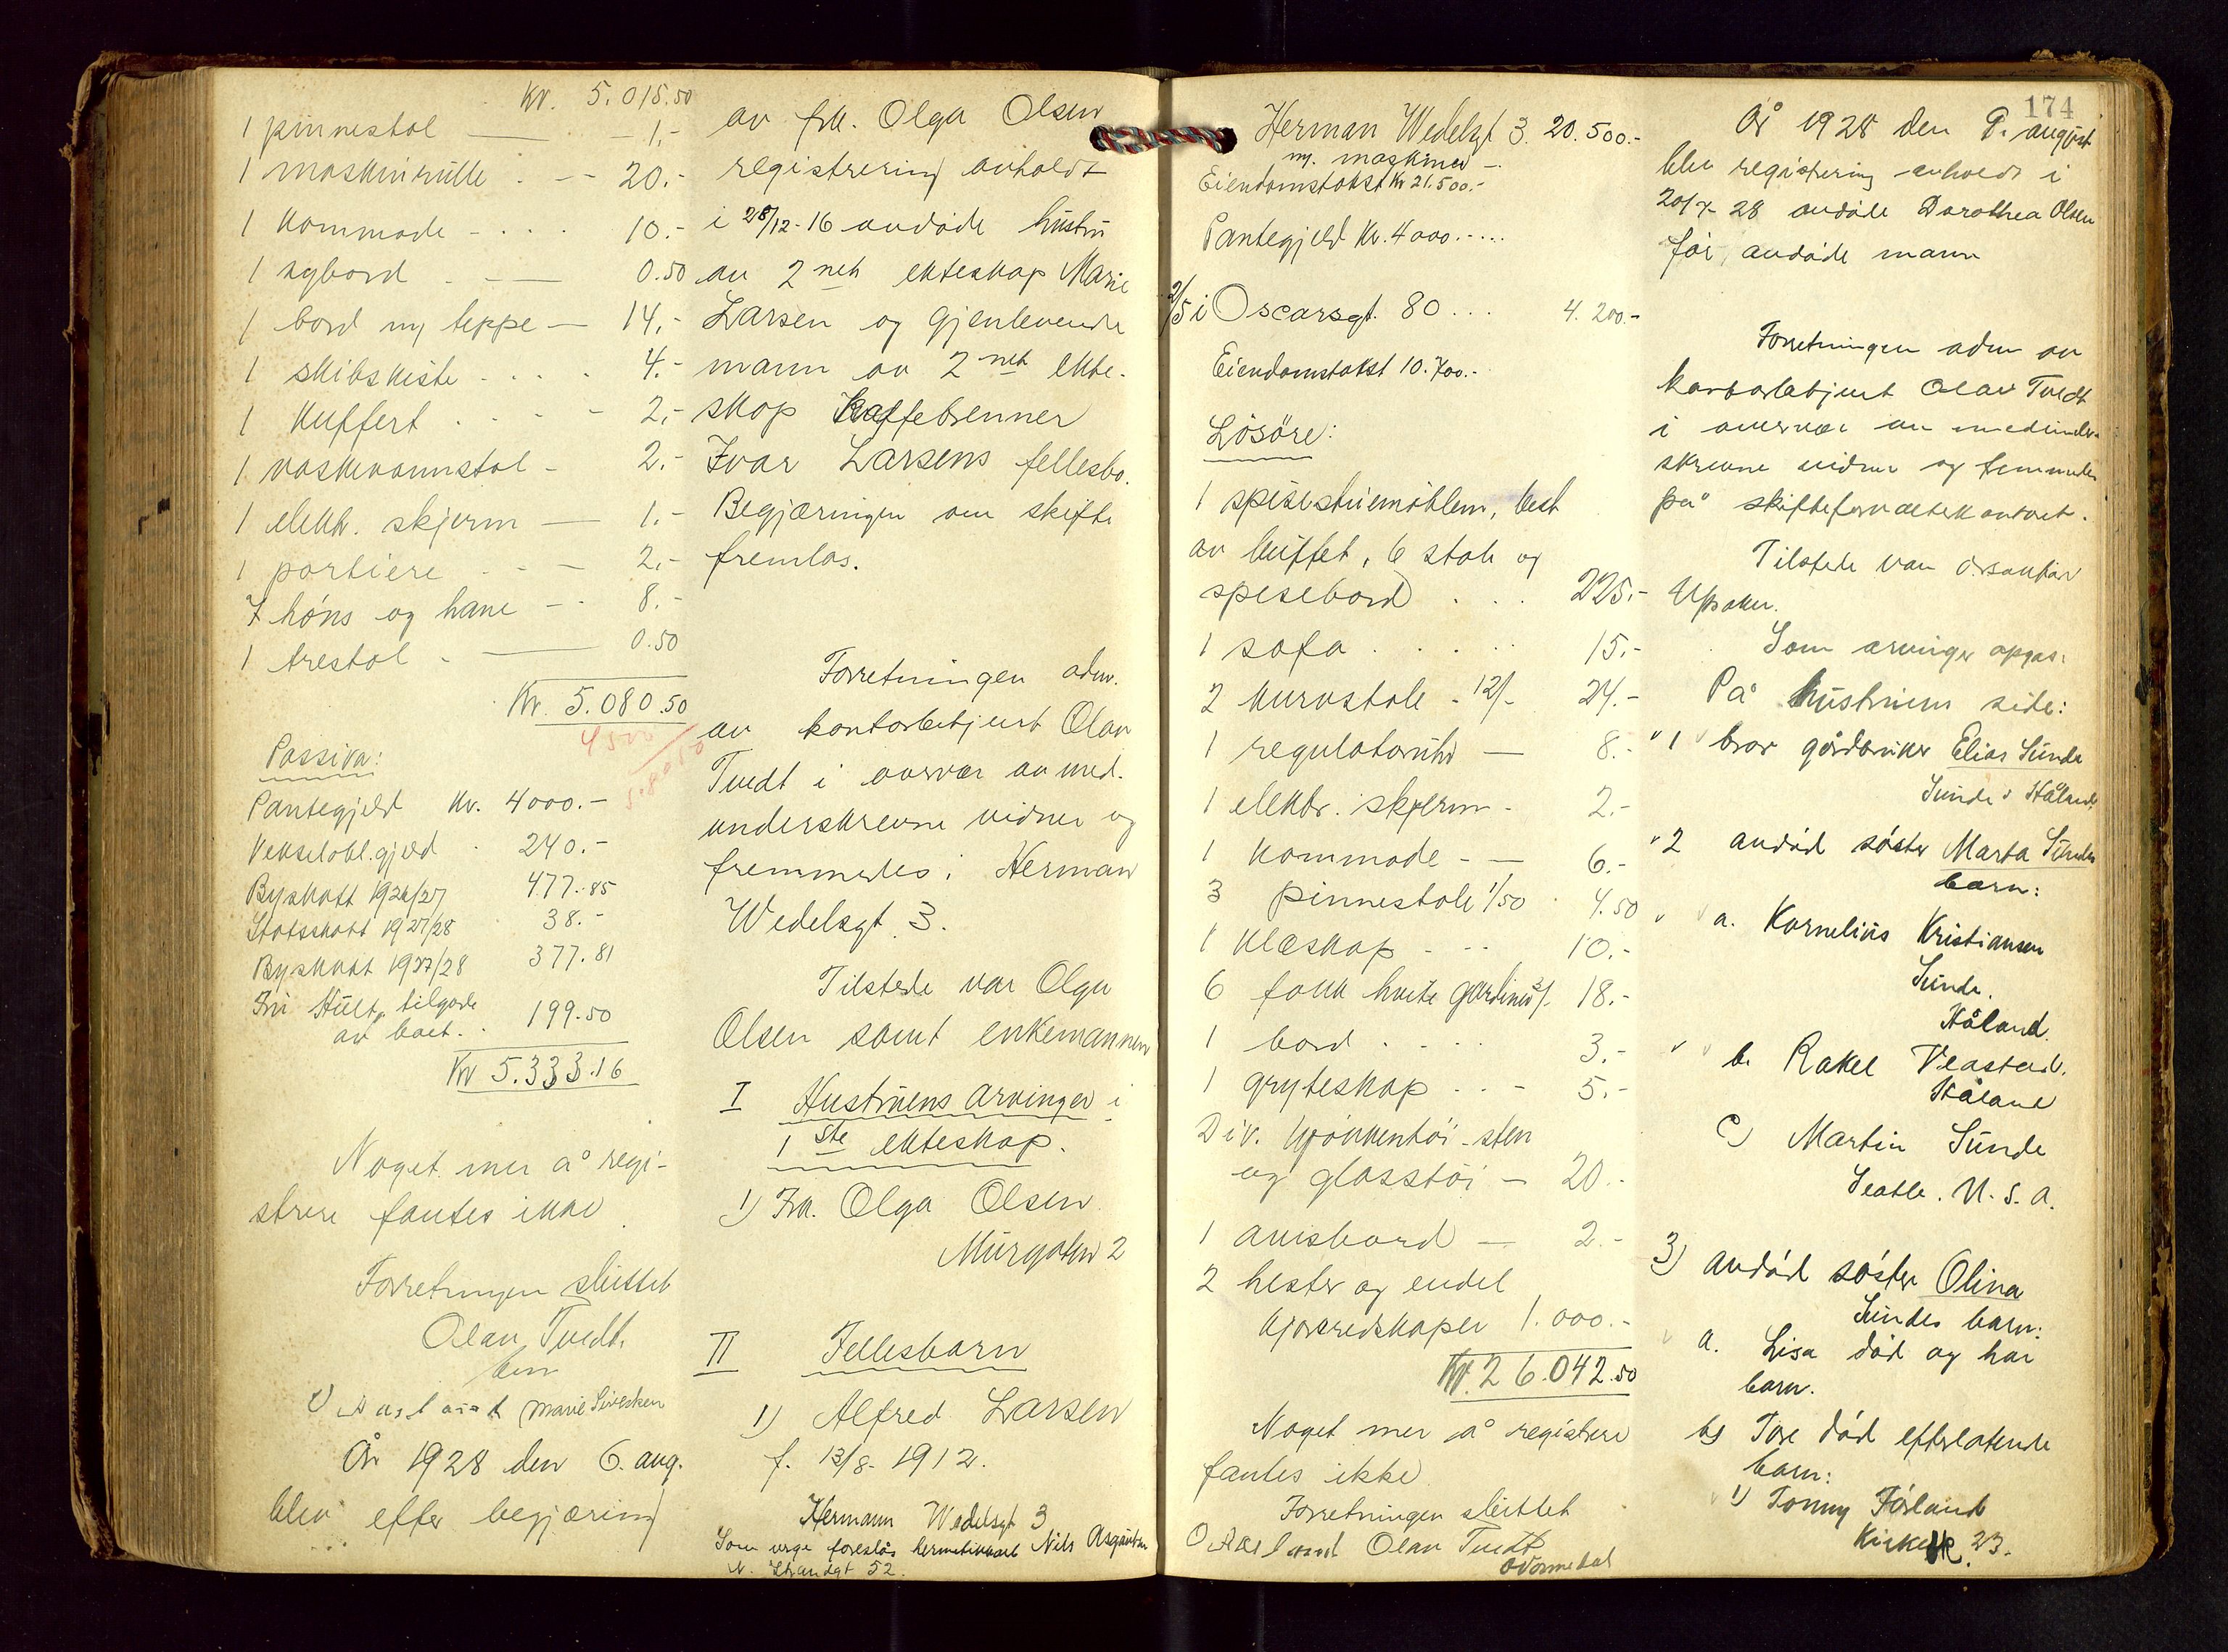 Kr. 5.015.50
1 pinnestol — 1,-
1 maskinrulle . — 20.-
1 kommode - . . . 10.-
1 sybord . - — 0.50
1 bord m/ teppe — 14,-
1 skibskiste . . . . 4.-
1 kuffert . . - - 2,-
1 vaskevannstol - 2.-
1 elektr. skjerm — 1.-
1 portiere . - — 2,-
7 høns og hane - - 8.-
1 trestol . — 0.50
Kr. 5.080.50
4500
5.80.50
Passiva:
Pantegjeld Kr. 4000.-
Vekselobl.gjeld . 240.-
Byskatt 1926/27 477.85
Statsskatt 1927/28 38.-
Byskatt 1927/28 377.81
Fru Hult, tilgode
av boet. . 199.50
Kr 5.333.16
Noget mer å regi-
strere fantes ikke
Forretningen sluttet
Olav Tvedt.
Marie Sivertsen
År 1928 den 6. aug.
blev efter begjæring
av frk. Olga Olsen
registrering avholdt
i 28/12-16 avdøde hustru
av 2net ekteskap Marie
Larsen og gjenlevende
mann av 2net ekte-
skap Kaffebrenner
Ivar Larsens fellesbo.
Begjæringen om skifte
fremlas.
Forretningen adm.
av kontorbetjent Olav
Tvedt i overvær av med-
underskrevne vidner og
fremmedes i Herman
Wedelsgt 3.
Tilstede var Olga
Olsen samt enkemannen
I Hustruens arvinger i
1ste ekteskap.
1) Frk. Olga Olsen
Murgaten 2
II Fellesbarn
1) Alfred Larsen
f. 13/8-1912.
Hermann Wedelsgt 3
Som verge foreslås hermetikkarb Nils Asgautsen
N. Strandgt 52.
174
Herman Wedelsgt 3. 20.500.-
m. maskiner -
Eiendomstakst Kr 21.500.-
Pantegjeld Kr. 4000.-...
2/5 i Oscarsgt. 80 ... 4.200.-
Eiendomstakst 10.700.-
Løsøre:
1 spisestuemøblem, best
av buffet, 6 stole og
spisebord . . . 225.-
1 sofa . . . . . 15.-
2 kurvstole - 12/- 24.-
1 regulatoruhr — 8.-
1 elektr. skjerm - 2.-
1 kommode - — 6.-
3 pinnestole 1/50 . 4.50
1 klæskap - - - 10.-
6 fakk hvite gardiner 3/- 18.-
1 bord . . . . 3.-
1 gryteskap . . - 5.-
Div. kjøkkentøi - sten
og glasstøi — 20.-
1 avisbord — 2.-
2 hester og endel
kjøreredskaper 1.000.-
Kr. 26.042.50
Noget mer å registrere
fantes ikke
Forretningen sluttet
O Aasland Olav Tvedt
År 1928 den 9. august
blev registrering avholdt i
20/7-28 avdøde Dorothea Olsen
før avdøde mann
Forretningen adm av
kontorbetjent Olav Tvedt
i overvær av medunder-
skrevne vidner og fremmedes
på skifteforvalterkontoret.
Tilstede var o.r.sakfør
Opsaker.
Som arvinger opgas:
På hustruens side:
1 bror gårdbruker Elias Sunde
Sunde i Håland
2 avdød søster Marta Sundes
barn:
a. Kornelius Kristiansen
Sunde.
Håland.
b. Rakel Veastad.
Håland
c) Martin Sunde
Seatle. U.S.A.
3) avdød søster Olina
Sundes barn:
a. Lisa død og har
barn.
b) Tore død efterlatende
barn:
1) Tonny Førland
Kirkebk. 23.